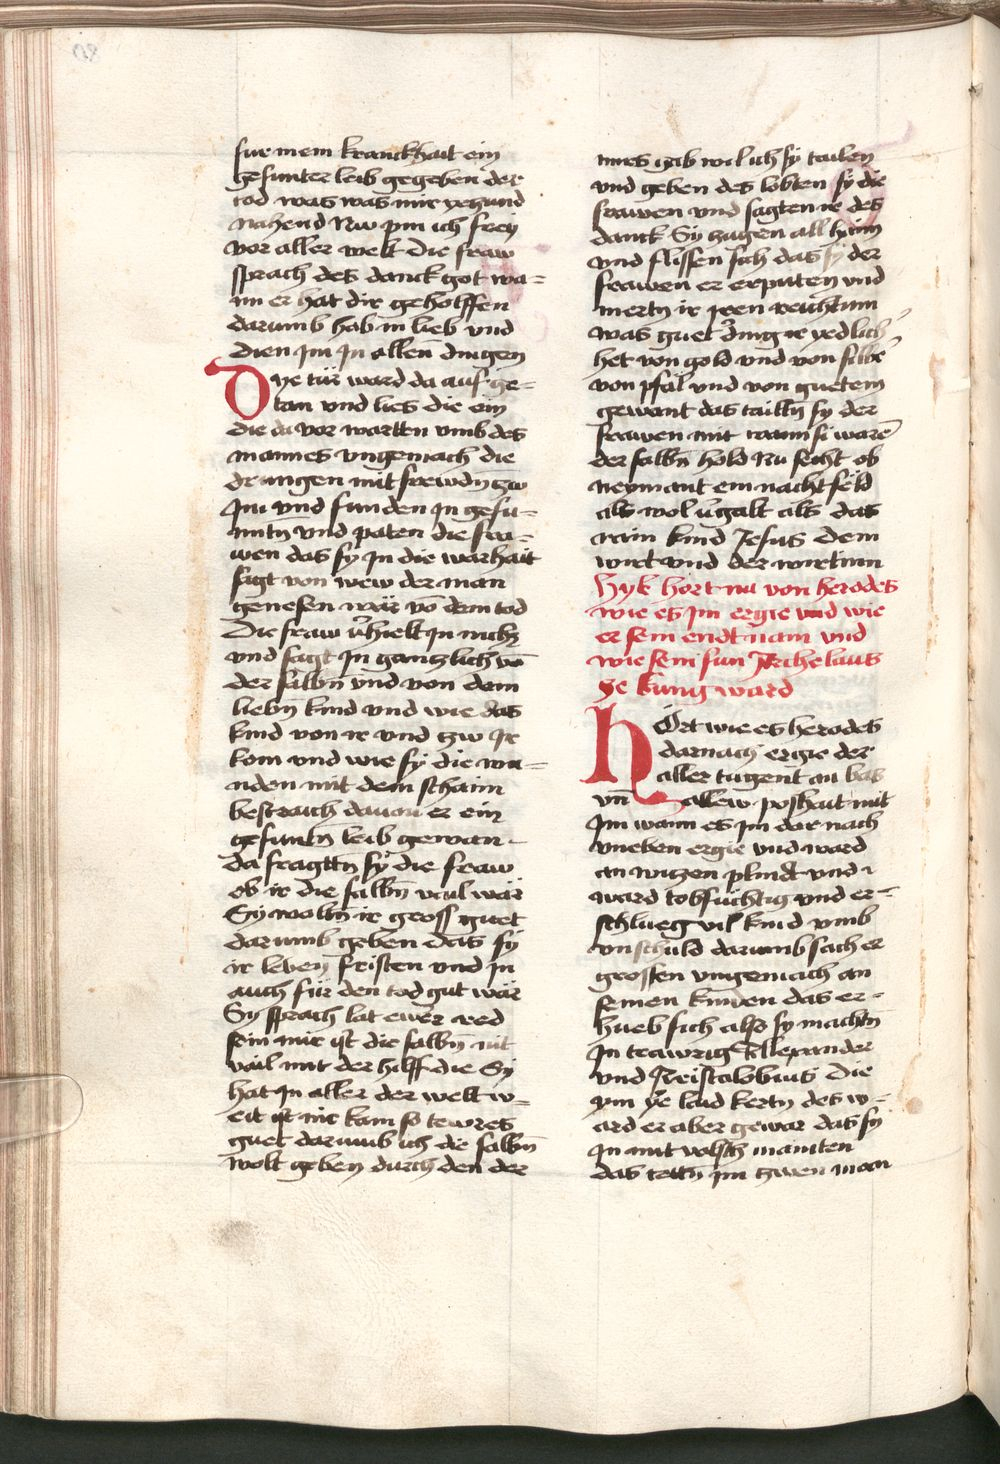 fur mein kranckhait ein
gesunter leib gegeben der
tod was was mir yezund
nahend Nw pin ich frey
vor aller welt die fraw
sprach des danck got wa=
nn er hat dir geholffen
darumb hab in lieb vnd
dien Im In allen dingen
Dye tür ward da auf ge=
tan vnd lies die ein
die da vor wartten vmb des
mannes vngemach die
drungen mit frewdn̄ zw
Im vnd funden In gesu=
nntn̄ vnd paten die fra=
wen das sy In die warhait
sagt von wew der man
genesen wär vō dem tod
Die fraw v̓hielt In nichz
vnd sagt In gantzlich vō
der salbn̄ vnd von dem
liebn̄ kind vnd wie das
kind von ir vnd zw Ir
kom vnd wie sy die wu=
nden mit dem schaim
bestraich dauon er ein
gesuntn̄ leib gewan
da fragttn̄ sy die fraw
ob ir die salbn̄ vail wär
Sy woltn̄ ir gross guet
darumb geben das sy
ir leben fristen vnd In
auch für den tod gut wär
Sy sprach lat ewer red
sein mir ist die salbn̄ nit
vail mit der hilff die Sy
hat In aller der welt w=
eit ist nie kam so tewres
guet darumb ich die salbn̄
wolt geben durch den der
mirs gab wil ich sy tailen
vnd geben des lobten sy die
frawen vnd sagten ir des
danck Sy zugen all hyim
vnd flissen sich das sy der
frawen er erputen vnd
mertn ir iren reichtum
was gueter ding ir yedlich
het von gold vnd von silber
von pfäl vnd von guetem
gewant das tailtn̄ sy der
frawen mit wann si warē
der salbn̄ hold Nu secht ob
neymant ein nacht seld
als wol v̓galt als das
rain kind Jesus dem
wirt vnd der wirtinn
hye hort nu von herodes
wie es im ergie vnd wie
er sein endt nam vnd
wie sein sun Archelaus
ze kung ward
hOrt wie es herodes
darnach ergie der
aller tugent an bas
vn̄ allew poshait mit
Im wann es Im dar nach
vneben ergie vnd ward
an wizen plindt vnd
ward tobsüchtig vnd er=
schlueg vil kind vmb
vnschuld darumb sach er
grossen vngemach an
seinen kinden das er=
hueb sich also sy machtn̄
In trawrig Allexander
vnd Aristabolus die
ym ye laid kertn̄ des w=
ard er aber gewar das sy
In mit valsch mainten
das tettn̄ im zwen man